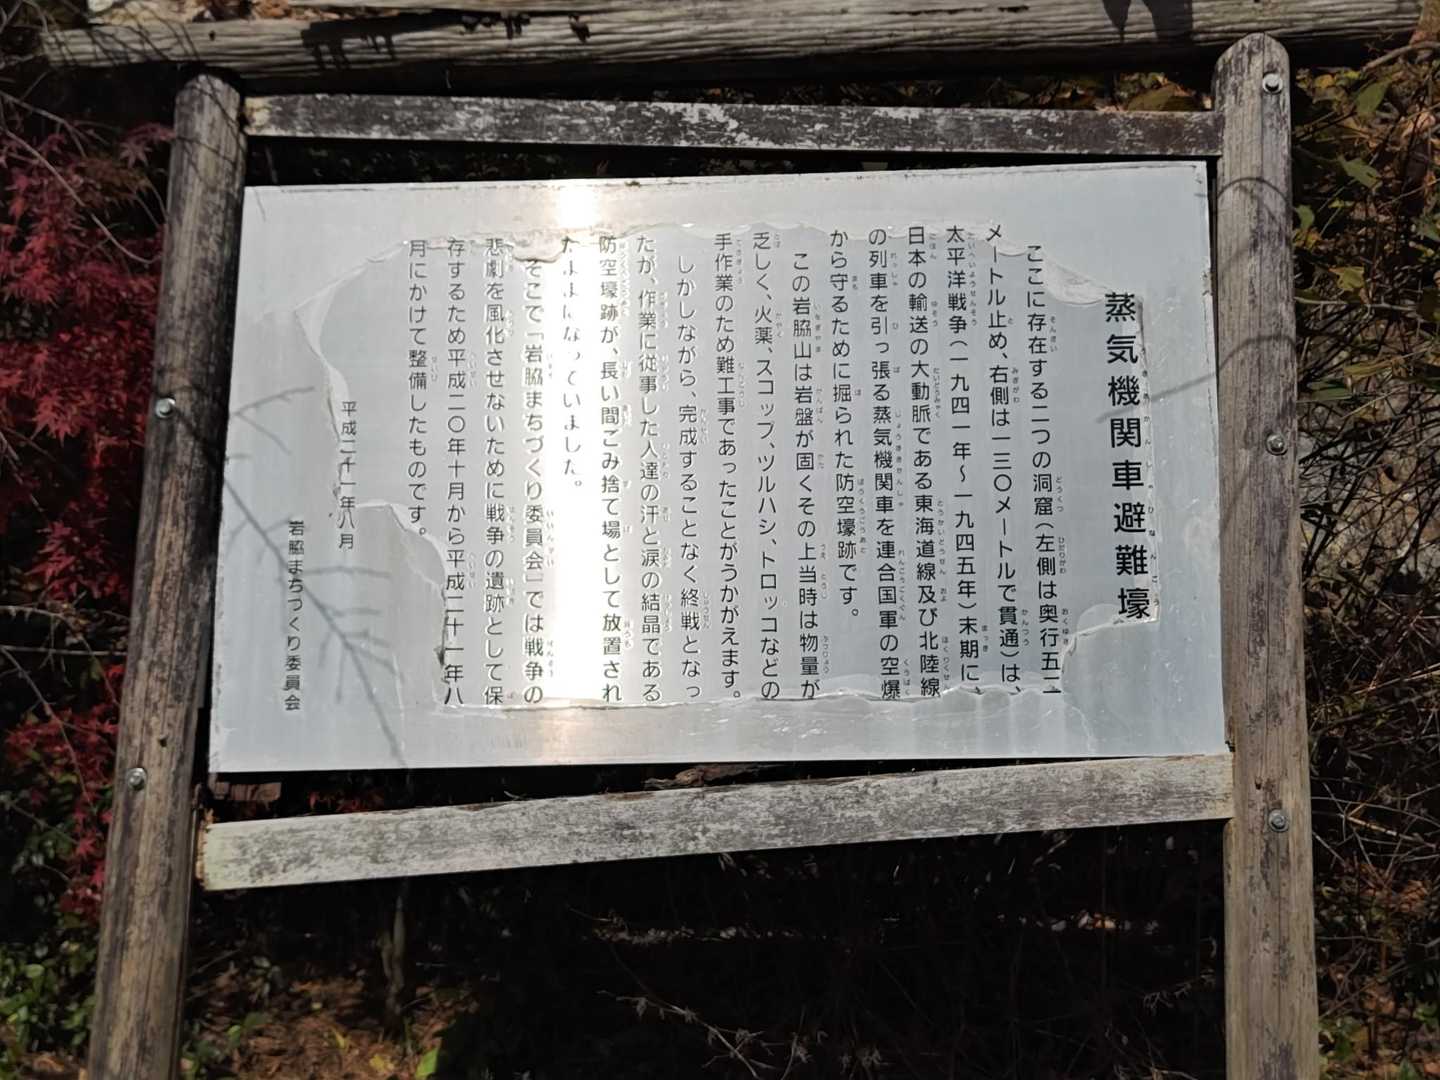 蒸気機関車避難壕
ここに存在する二つの洞窟（左側は奥行五二
メートル止め、右側は一三〇メートルで貫通）は、
太平洋戦争（一九四一年～一九四五年）末期に、
日本の輸送の大動脈である東海道線及び北陸線
の列車を引っ張る蒸気機関車を連合国軍の空爆
から守るために掘られた防空壕跡です。
この岩脇山は岩盤が固くその上当時は物量が
乏しく、火薬、スコップ、ツルハシ、トロッコなどの
手作業のため難工事であったことがうかがえます。
しかしながら、完成することなく終戦となっ
たが、作業に従事した人達の汗と涙の結晶である
防空壕跡が、長い間ごみ捨て場として放置され
たままになっていました。
そこで「岩脇まちづくり委員会」では戦争の
悲劇を風化させないために戦争の遺跡として保
存するため平成二〇年十月から平成二十一年八
月にかけて整備したものです。
平成二十一年八月
岩脇まちづくり委員会